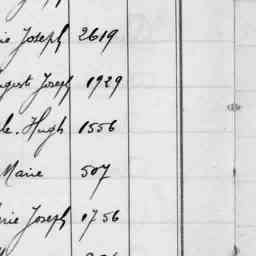 ie Joseph 2619
uguste Joseph 1929
le. Hugh 1556
Marie 507
rie Joseph 1756